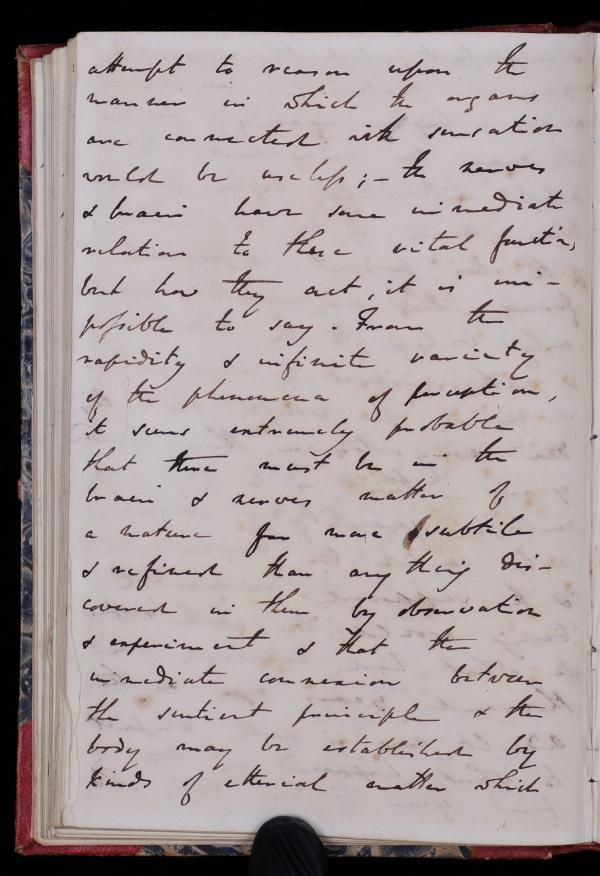 attempt to reason upon the
manner in which the organs
are connected with sensation
would be useless; - the nerves
& brain have some immediate
relation to these vital functions,
but how they act, it is im-
possible to say. From the
rapidity & infinite variety
of the phenomena of perception,
it seems extremely probable
that there must be in the
brain & nerves matter of
a nature far more subtile
& refined than any thing dis-
covered in them by observation
& experiment & that the
immediate connexion between
the sentient principle & the
body may be established by
kinds of etherial matter which